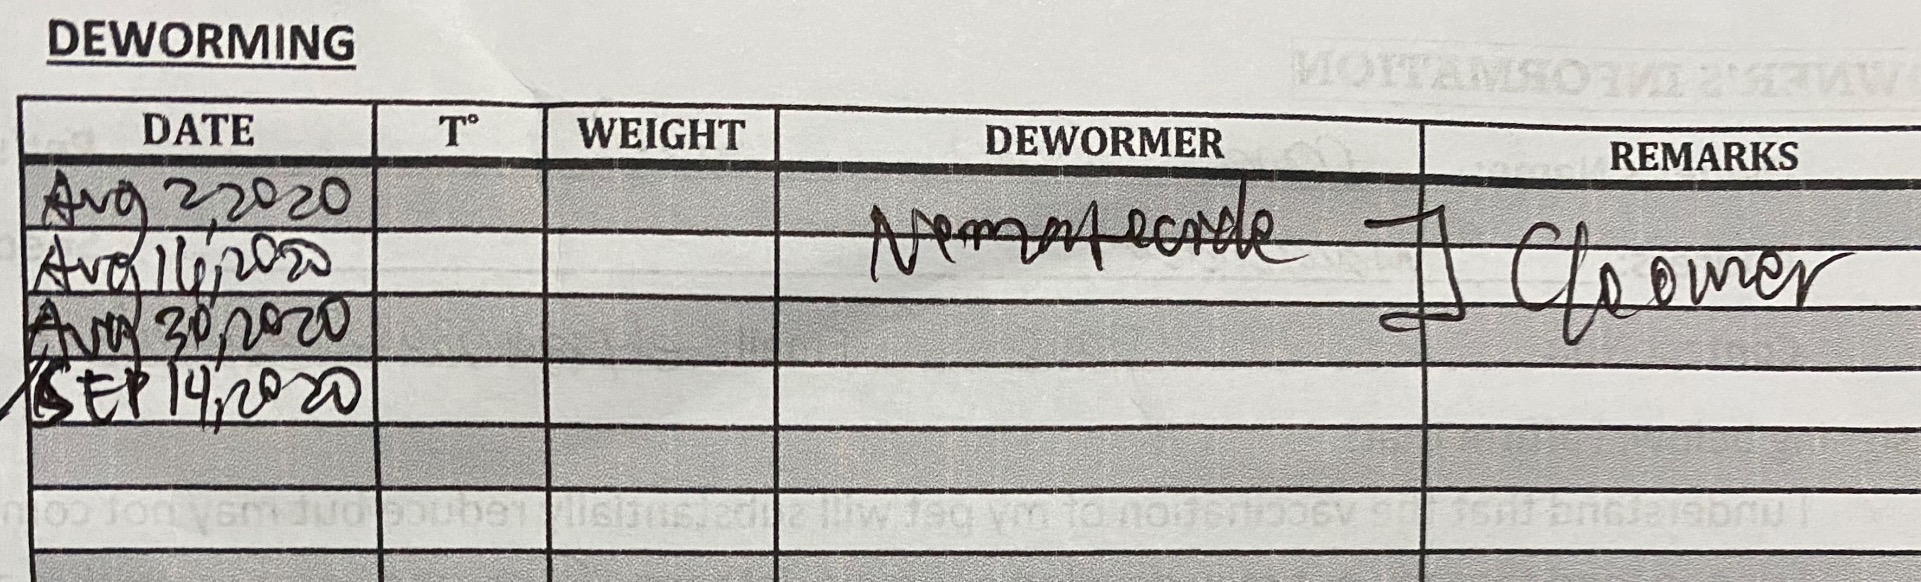 DEWORMING
DATE T° WEIGHT DEWORMER REMARKS
Aug 2, 2020 Nematocide
Aug 16, 2020
Aug 30, 2020
SEP 14, 2020
I understand that the vaccination of my pet will substantially reduce but may not